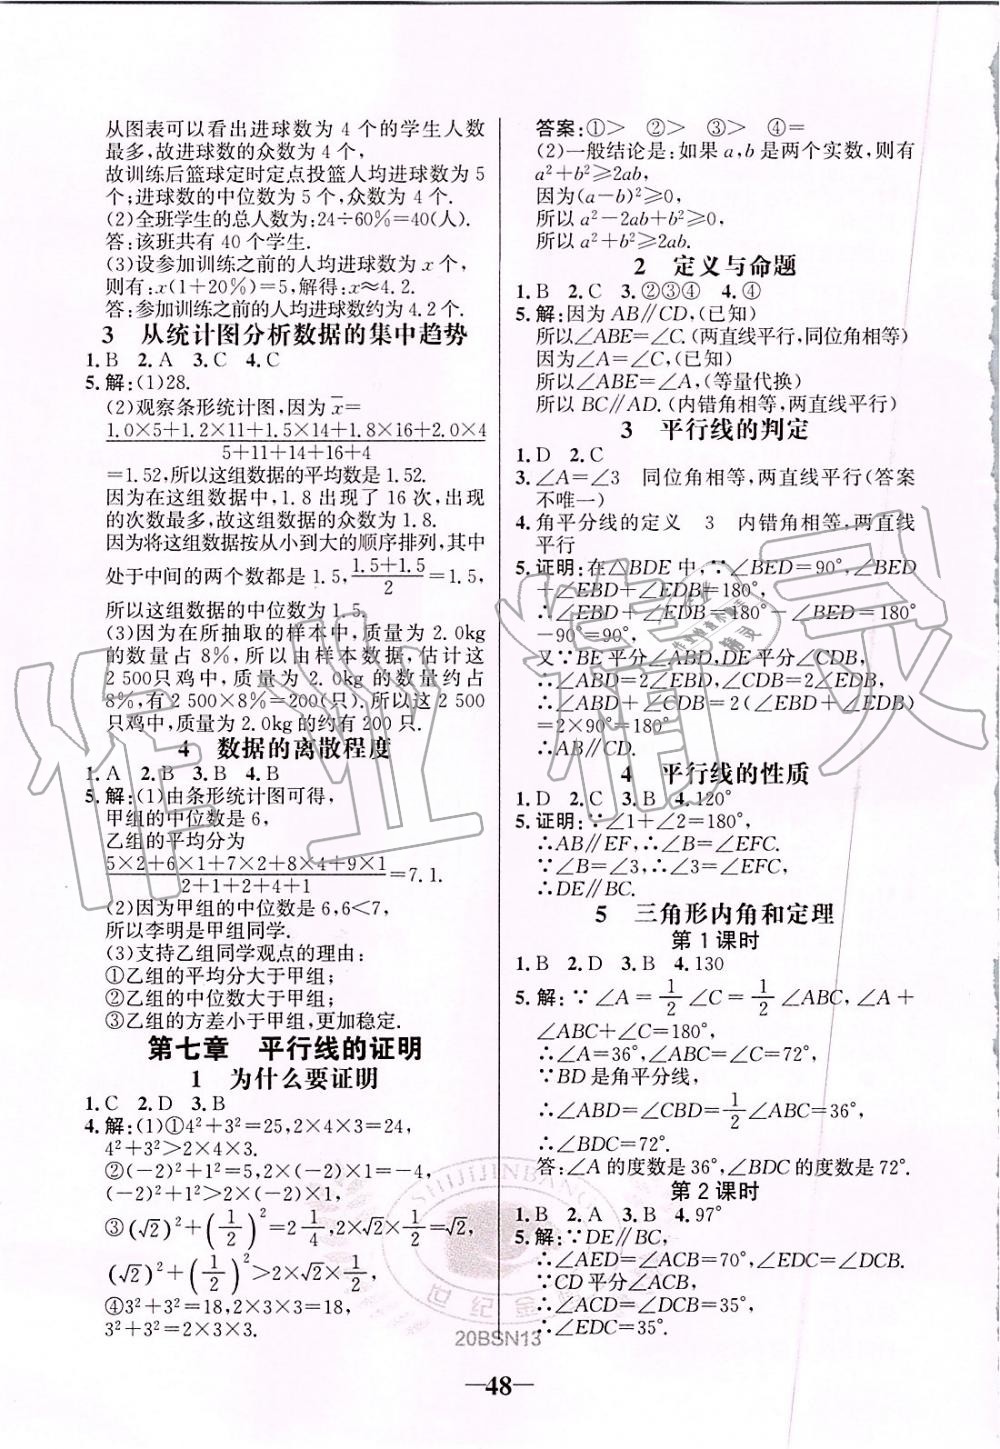 从图表可以看出进球数为 4 个的学生人数
最多,故进球数的众数为 4 个,
故训练后篮球定时定点投篮人均进球数为 5
个;进球数的中位数为 5 个,众数为 4 个.
(2)全班学生的总人数为:24÷60%=40(人).
答:该班共有 40 个学生.
(3)设参加训练之前的人均进球数为 x 个,
则有:x(1+20%)=5,解得:x≈4.2.
答:参加训练之前的人均进球数约为 4.2 个.
3 从统计图分析数据的集中趋势
1.B 2.A 3.C 4.C
5.解:(1)28.
(2)观察条形统计图,因为 x̄=
1.0×5+1.2×11+1.5×14+1.8×16+2.0×4
5+11+14+16+4
=1.52,所以这组数据的平均数是 1.52.
因为在这组数据中,1.8 出现了 16 次,出现
的次数最多,故这组数据的众数为 1.8.
因为将这组数据按从小到大的顺序排列,其中
处于中间的两个数都是 1.5,(1.5+1.5)/2=1.5,
所以这组数据的中位数为 1.5.
(3)因为在所抽取的样本中,质量为 2.0kg
的数量占 8%,所以由样本数据,估计这
2 500只鸡中,质量为 2.0kg 的数量约占
8%,有 2 500×8%=200(只).所以这 2 500
只鸡中,质量为 2.0kg 的约有 200 只.
4 数据的离散程度
1.A 2.B 3.B 4.B
5.解:(1)由条形统计图可得,
甲组的中位数是 6,
乙组的平均分为
(5×2+6×1+7×2+8×4+9×1)/(2+1+2+4+1)=7.1.
(2)因为甲组的中位数是 6,6<7,
所以李明是甲组同学.
(3)支持乙组同学观点的理由:
①乙组的平均分大于甲组;
②乙组的中位数大于甲组;
③乙组的方差小于甲组,更加稳定.
第七章 平行线的证明
1 为什么要证明
1.C 2.D 3.B
4.解:(1)①4²+3²=25,2×4×3=24,
4²+3²>2×4×3.
②(-2)²+1²=5,2×(-2)×1=-4,
(-2)²+1²>2×(-2)×1,
③(√2)²+(1/2)²=2 1/4,2×√2×1/2=√2,
(√2)²+(1/2)²>2×√2×1/2,
④3²+3²=18,2×3×3=18,
3²+3²=2×3×3.
答案:①> ②> ③> ④=
(2)一般结论是:如果 a,b 是两个实数,则有
a²+b²≥2ab,
因为(a-b)²≥0,
所以 a²-2ab+b²≥0,
所以 a²+b²≥2ab.
2 定义与命题
1.B 2.C 3.②③④ 4.④
5.解:因为 AB∥CD,(已知)
所以∠ABE=∠C.(两直线平行,同位角相等)
因为∠A=∠C,(已知)
所以∠ABE=∠A,(等量代换)
所以 BC∥AD.(内错角相等,两直线平行)
3 平行线的判定
1.D 2.C
3.∠A=∠3 同位角相等,两直线平行(答案
不唯一)
4.角平分线的定义 3 内错角相等,两直线
平行
5.证明:在△BDE 中,∵∠BED=90°,∠BED
+∠EBD+∠EDB=180°,
∴∠EBD+∠EDB=180°-∠BED=180°
-90°=90°.
又∵BE平分∠ABD,DE平分∠CDB,
∴∠ABD=2∠EBD,∠CDB=2∠EDB,
∴∠ABD+∠CDB=2(∠EBD+∠EDB)=
2×90°=180°,
∴AB∥CD.
4 平行线的性质
1.D 2.C 3.B 4.120°
5.证明:∵∠1+∠2=180°,
∴AB∥EF,∴∠B=∠EFC.
∵∠B=∠3,∴∠3=∠EFC,
∴DE∥BC.
5 三角形内角和定理
第 1 课时
1.B 2.D 3.B 4.130
5.解:∵∠A=1/2∠C=1/2∠ABC,∠A+
∠ABC+∠C=180°,
∴∠A=36°,∠ABC=∠C=72°.
∵BD是角平分线,
∴∠ABD=∠CBD=1/2∠ABC=36°,
∴∠BDC=72°.
答:∠A的度数是36°,∠BDC的度数是72°.
第 2 课时
1.B 2.A 3.B 4.97°
5.解:∵DE∥BC,
∴∠AED=∠ACB=70°,∠EDC=∠DCB.
∵CD平分∠ACB,
∴∠ACD=∠DCB=35°,
∴∠EDC=35°.
作业精灵
SHIJIJINBANG
世纪金
20BSN13
—48—